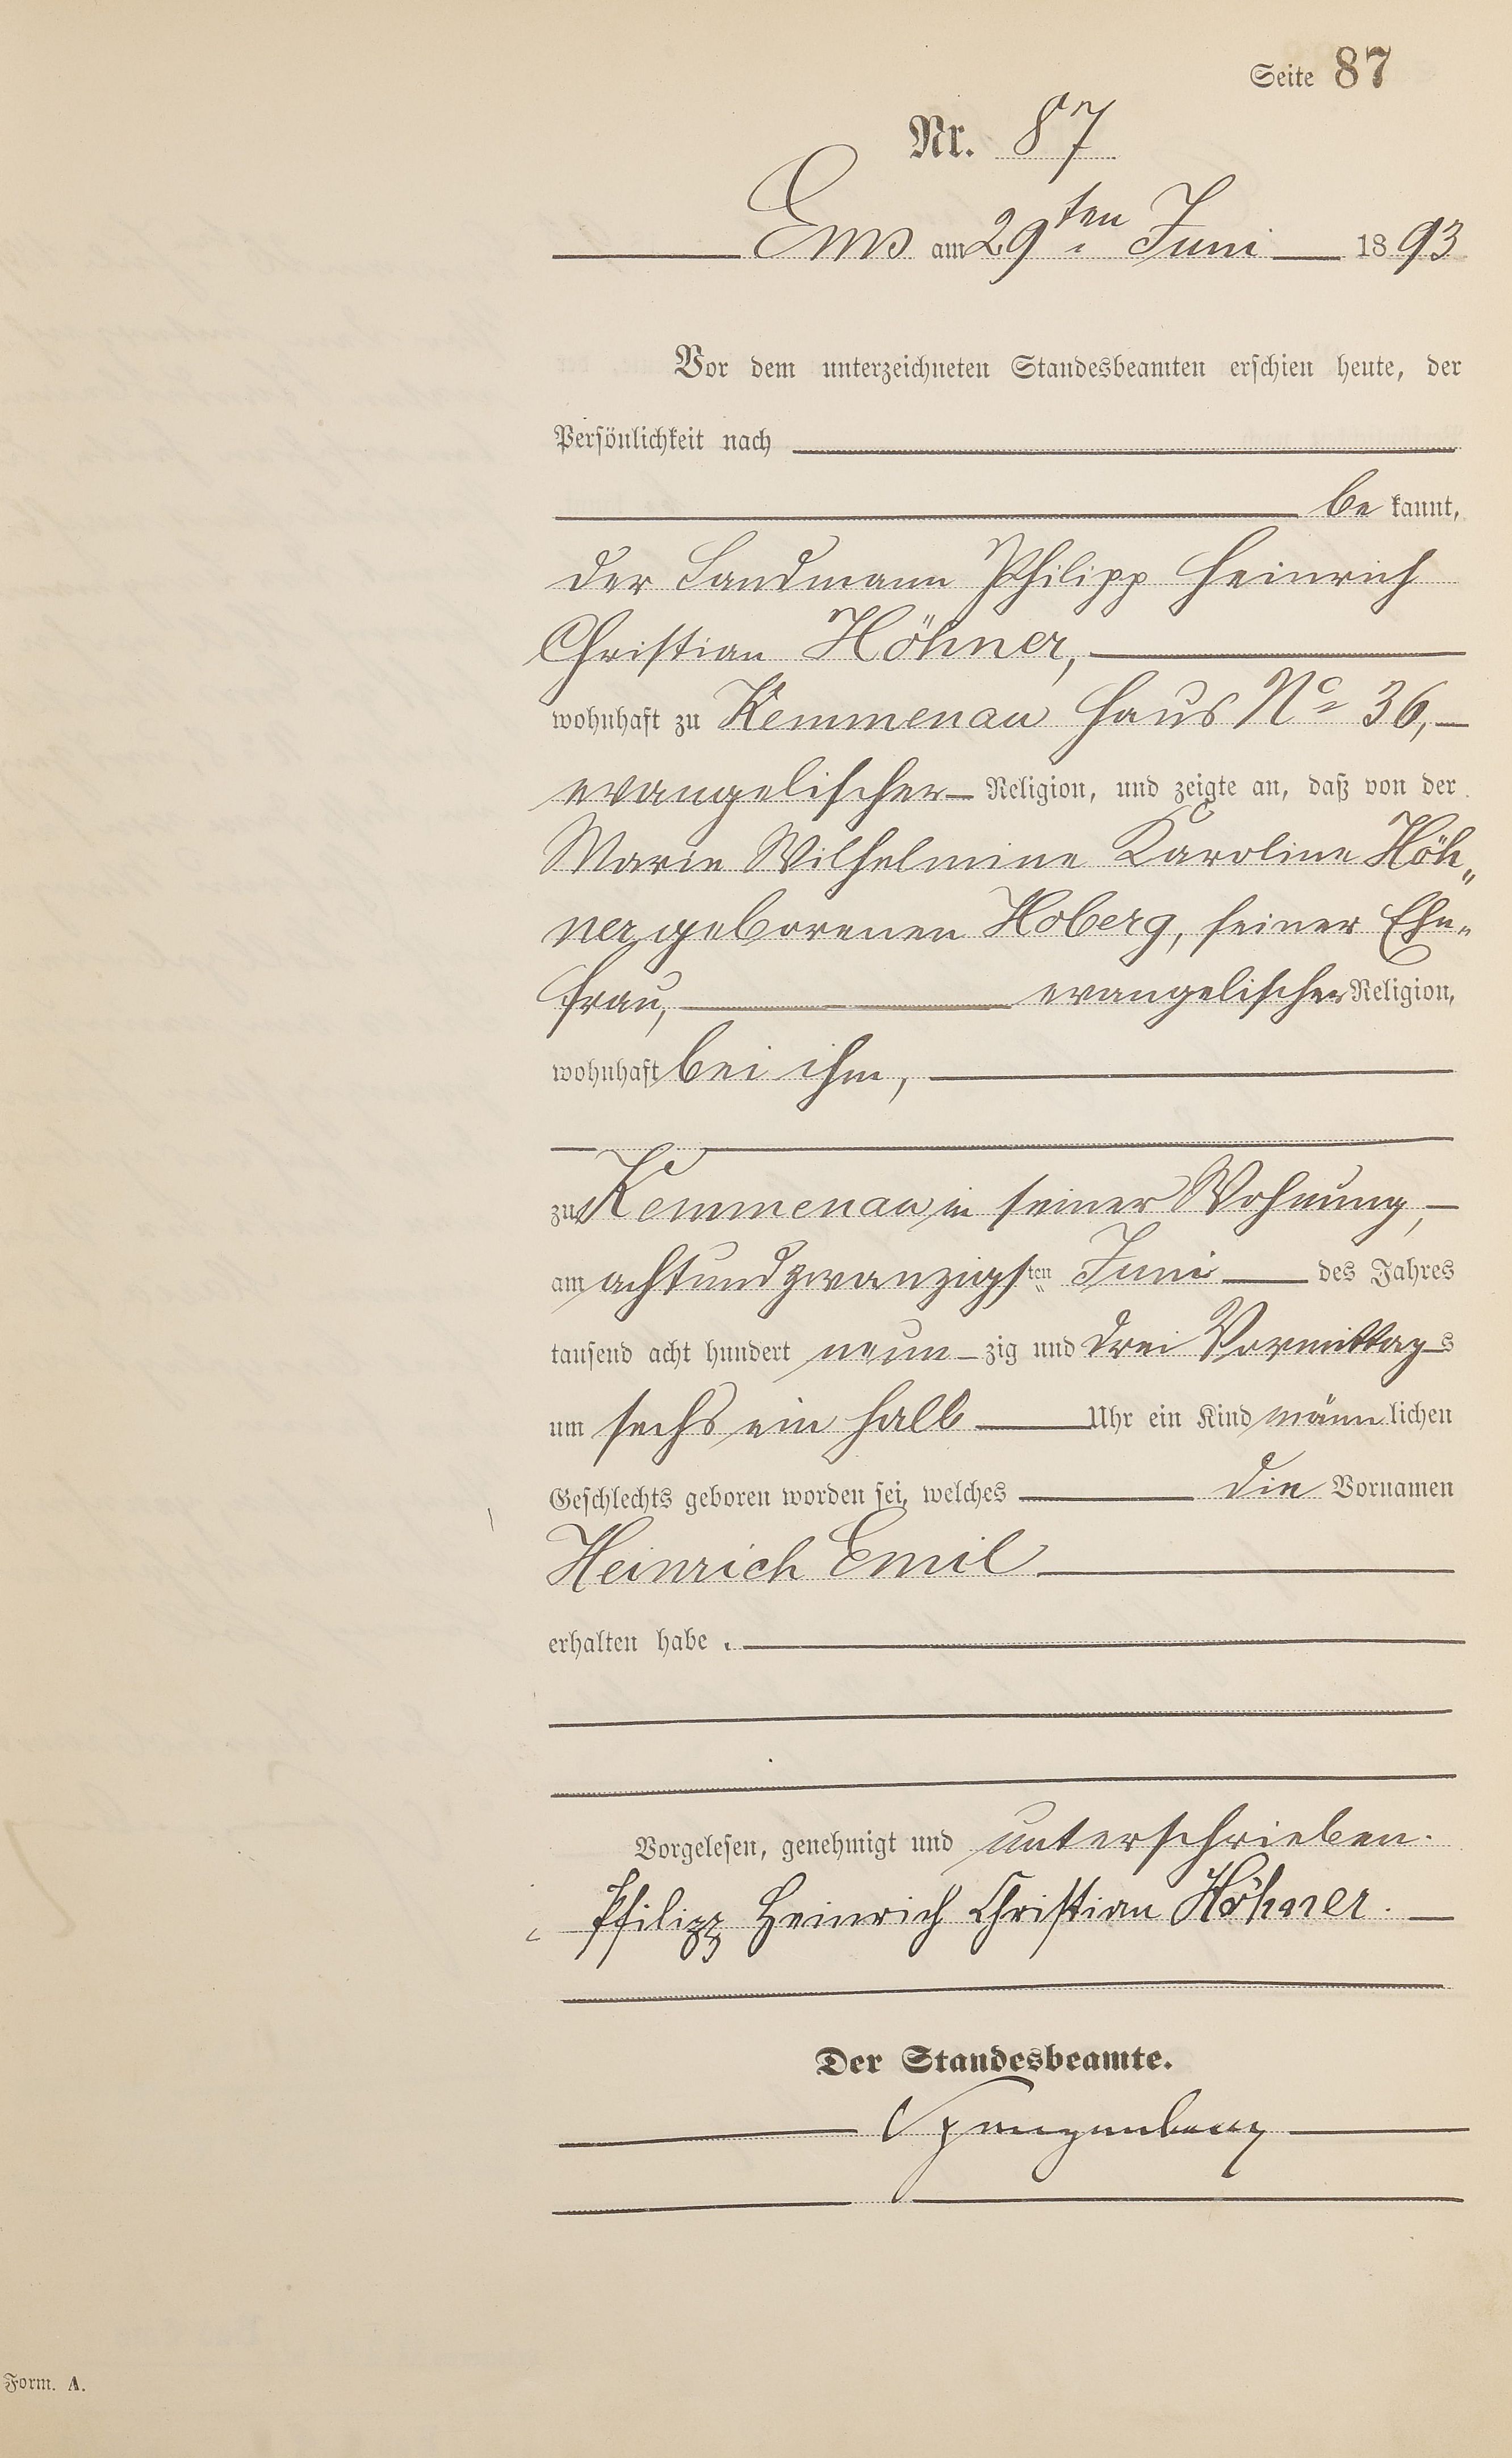 Seite 87
Nr. 87
Ems am 29ten Juni 1893
Vor dem unterzeichneten Standesbeamten erschien heute, der
Persönlichkeit nach
be kannt,
der Landmann Philipp Heinrich
Christian Höhner,
wohnhaft zu Kemmenau Haus No 36,
evangelischer Religion, und zeigte an, daß von der
Marie Wilhelmine Karoline Höh„
ner geborenen Hoberg, seiner Ehe„
frau, evangelischer Religion,
wohnhaft bei ihm,
zu Kemmenau in seiner Wohnung,
am achtundzwanzigsten Juni des Jahres
tausend acht hundert neun zig und drei Vormittags
um sechs ein halb Uhr ein Kind männlichen
Geschlechts geboren worden sei, welches die Vornamen
Heinrich Emil
erhalten habe.
Vorgelesen, genehmigt und unterschrieben.
Philipp Heinrich Christian Höhner.
Der Standesbeamte.
Spangenberg
Form. A.